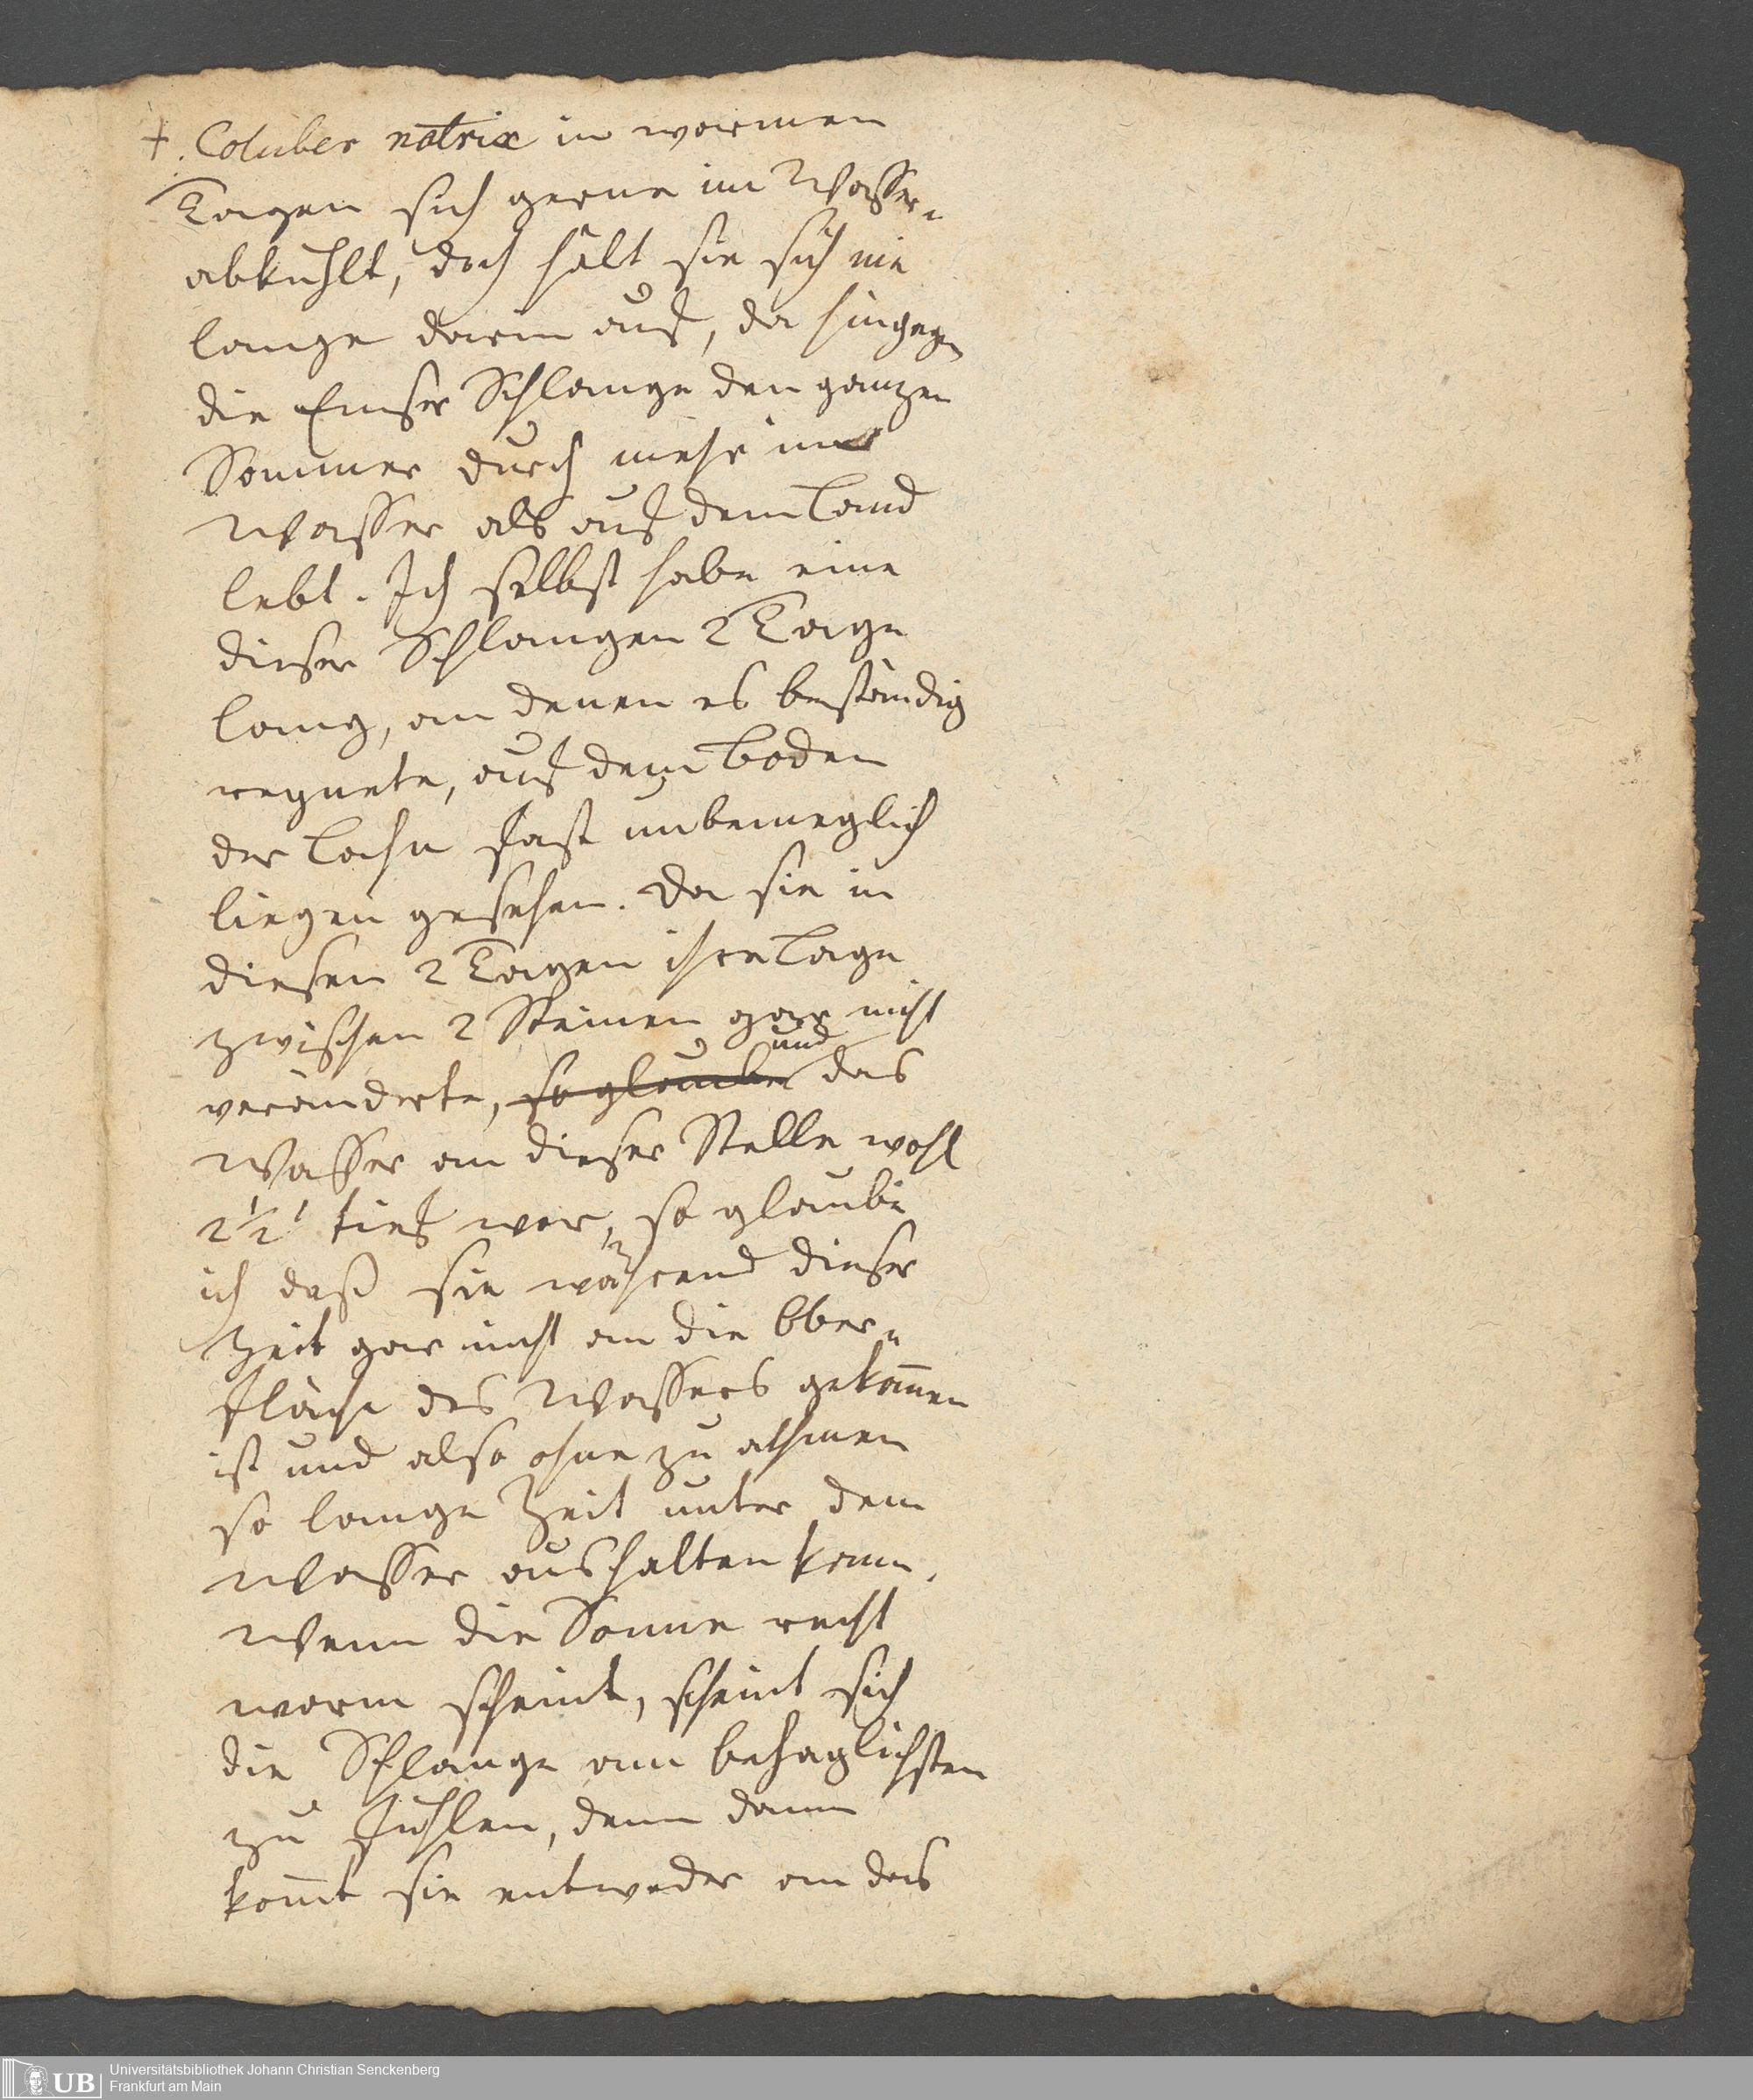 +. Coluber natrix in warmen
Tagen sich gerne im Wasser
abkühlt, doch hält sie sich nie
lange darin auf, da hingegen
die Emser Schlange den ganzen
Sommer durch mehr im
Wasser als auf dem Land
lebt. Ich selbst habe eine
dieser Schlangen 2 Tage
lang, an denen es beständig
regnete, auf dem Boden
der Lahn fast unbeweglich
liegen gesehen. Da sie in
diesen 2 Tagen ihre Lage
zwischen 2 Steinen gar nicht
und
veränderte, so glaube das
Wasser an dieser Stelle wohl
2 1/2' tief war, so glaube
ich daß sie während dieser
Zeit gar nicht an die Ober-
fläche des Wassers gekom̄en
ist und also ohne zu athmen
so lange Zeit unter dem
Wasser aushalten kann.
Wenn die Sonne recht
warm scheint, scheint sich
die Schlange am behaglichsten
zu fühlen, denn dann
kom̄t sie entweder an das
UB Universitätsbibliothek Johann Christian Senckenberg
Frankfurt am Main